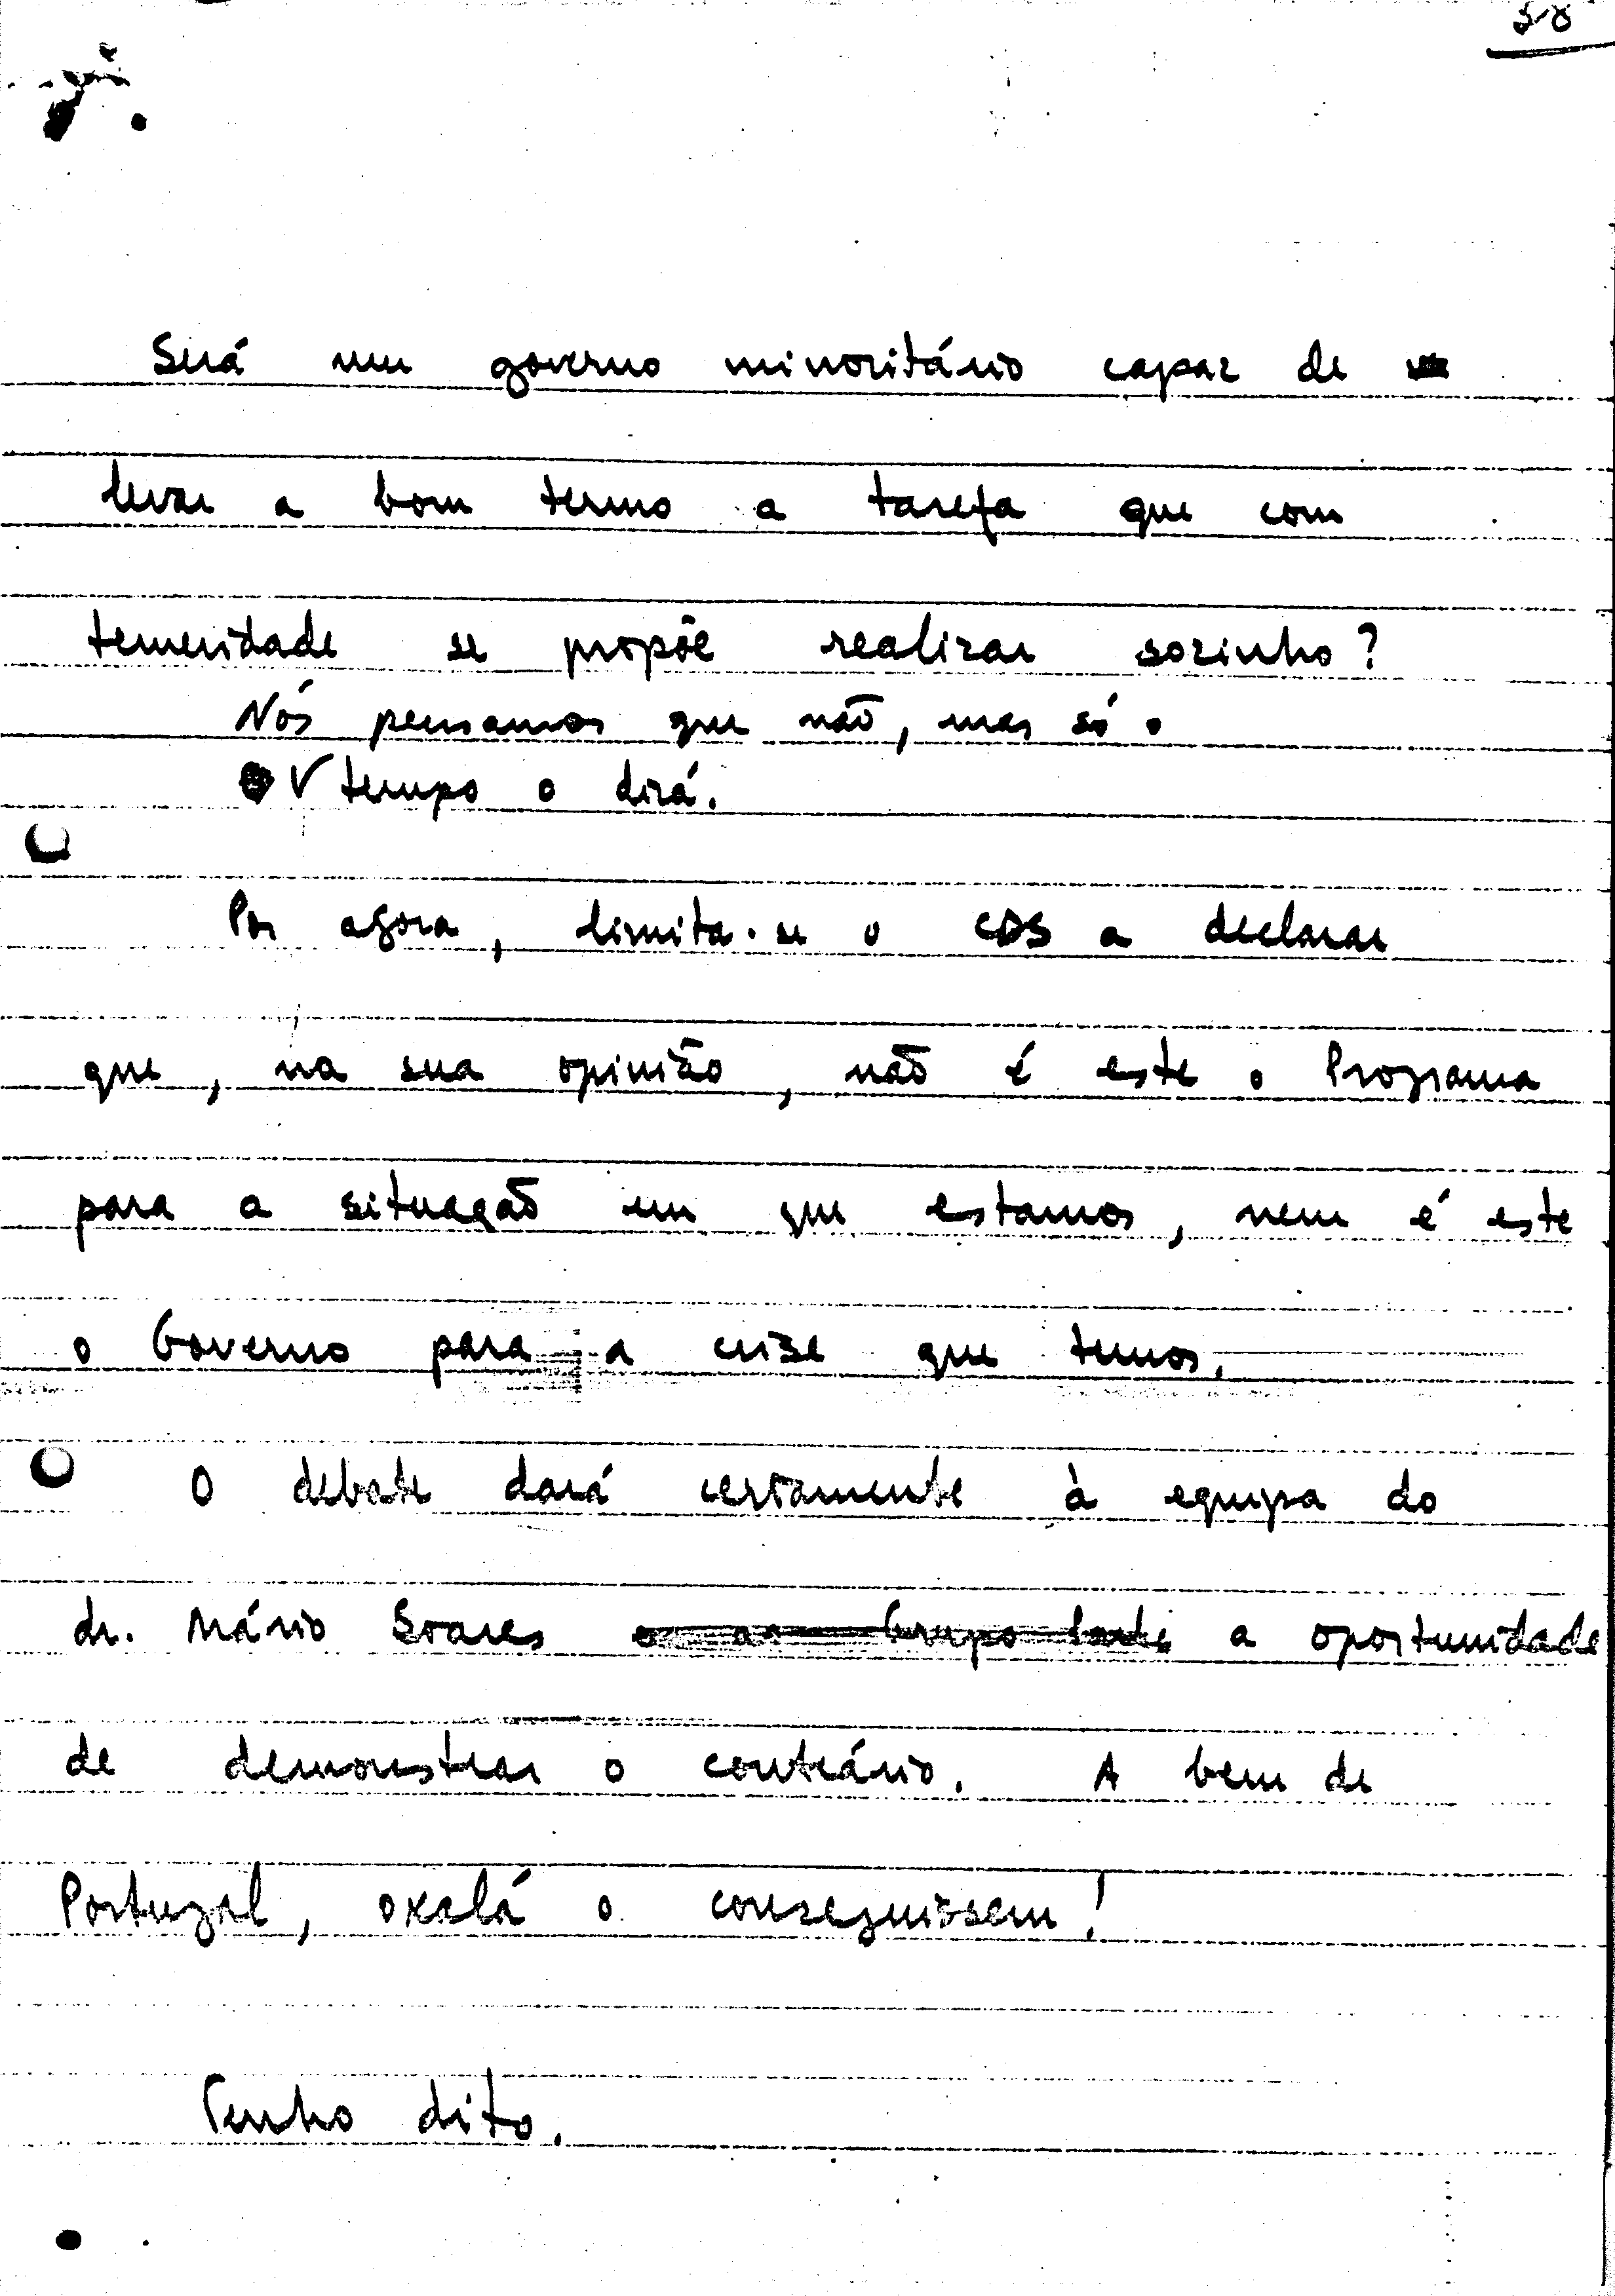 58
Será um governo minoritário capaz de
levar a bom termo a tarefa que com
temeridade se propõe realizar sozinho?
Nós pensamos que não, mas só o
V tempo o dirá.
Por agora, limita-se o CDS a declarar
que, na sua opinião, não é este o Programa
para a situação em que estamos, nem é este
o Governo para a crise que temos.
O debate dará certamente à equipa do
dr. Mário Soares a oportunidade
de demonstrar o contrário. A bem de
Portugal, oxalá o conseguissem!
Tenho dito.